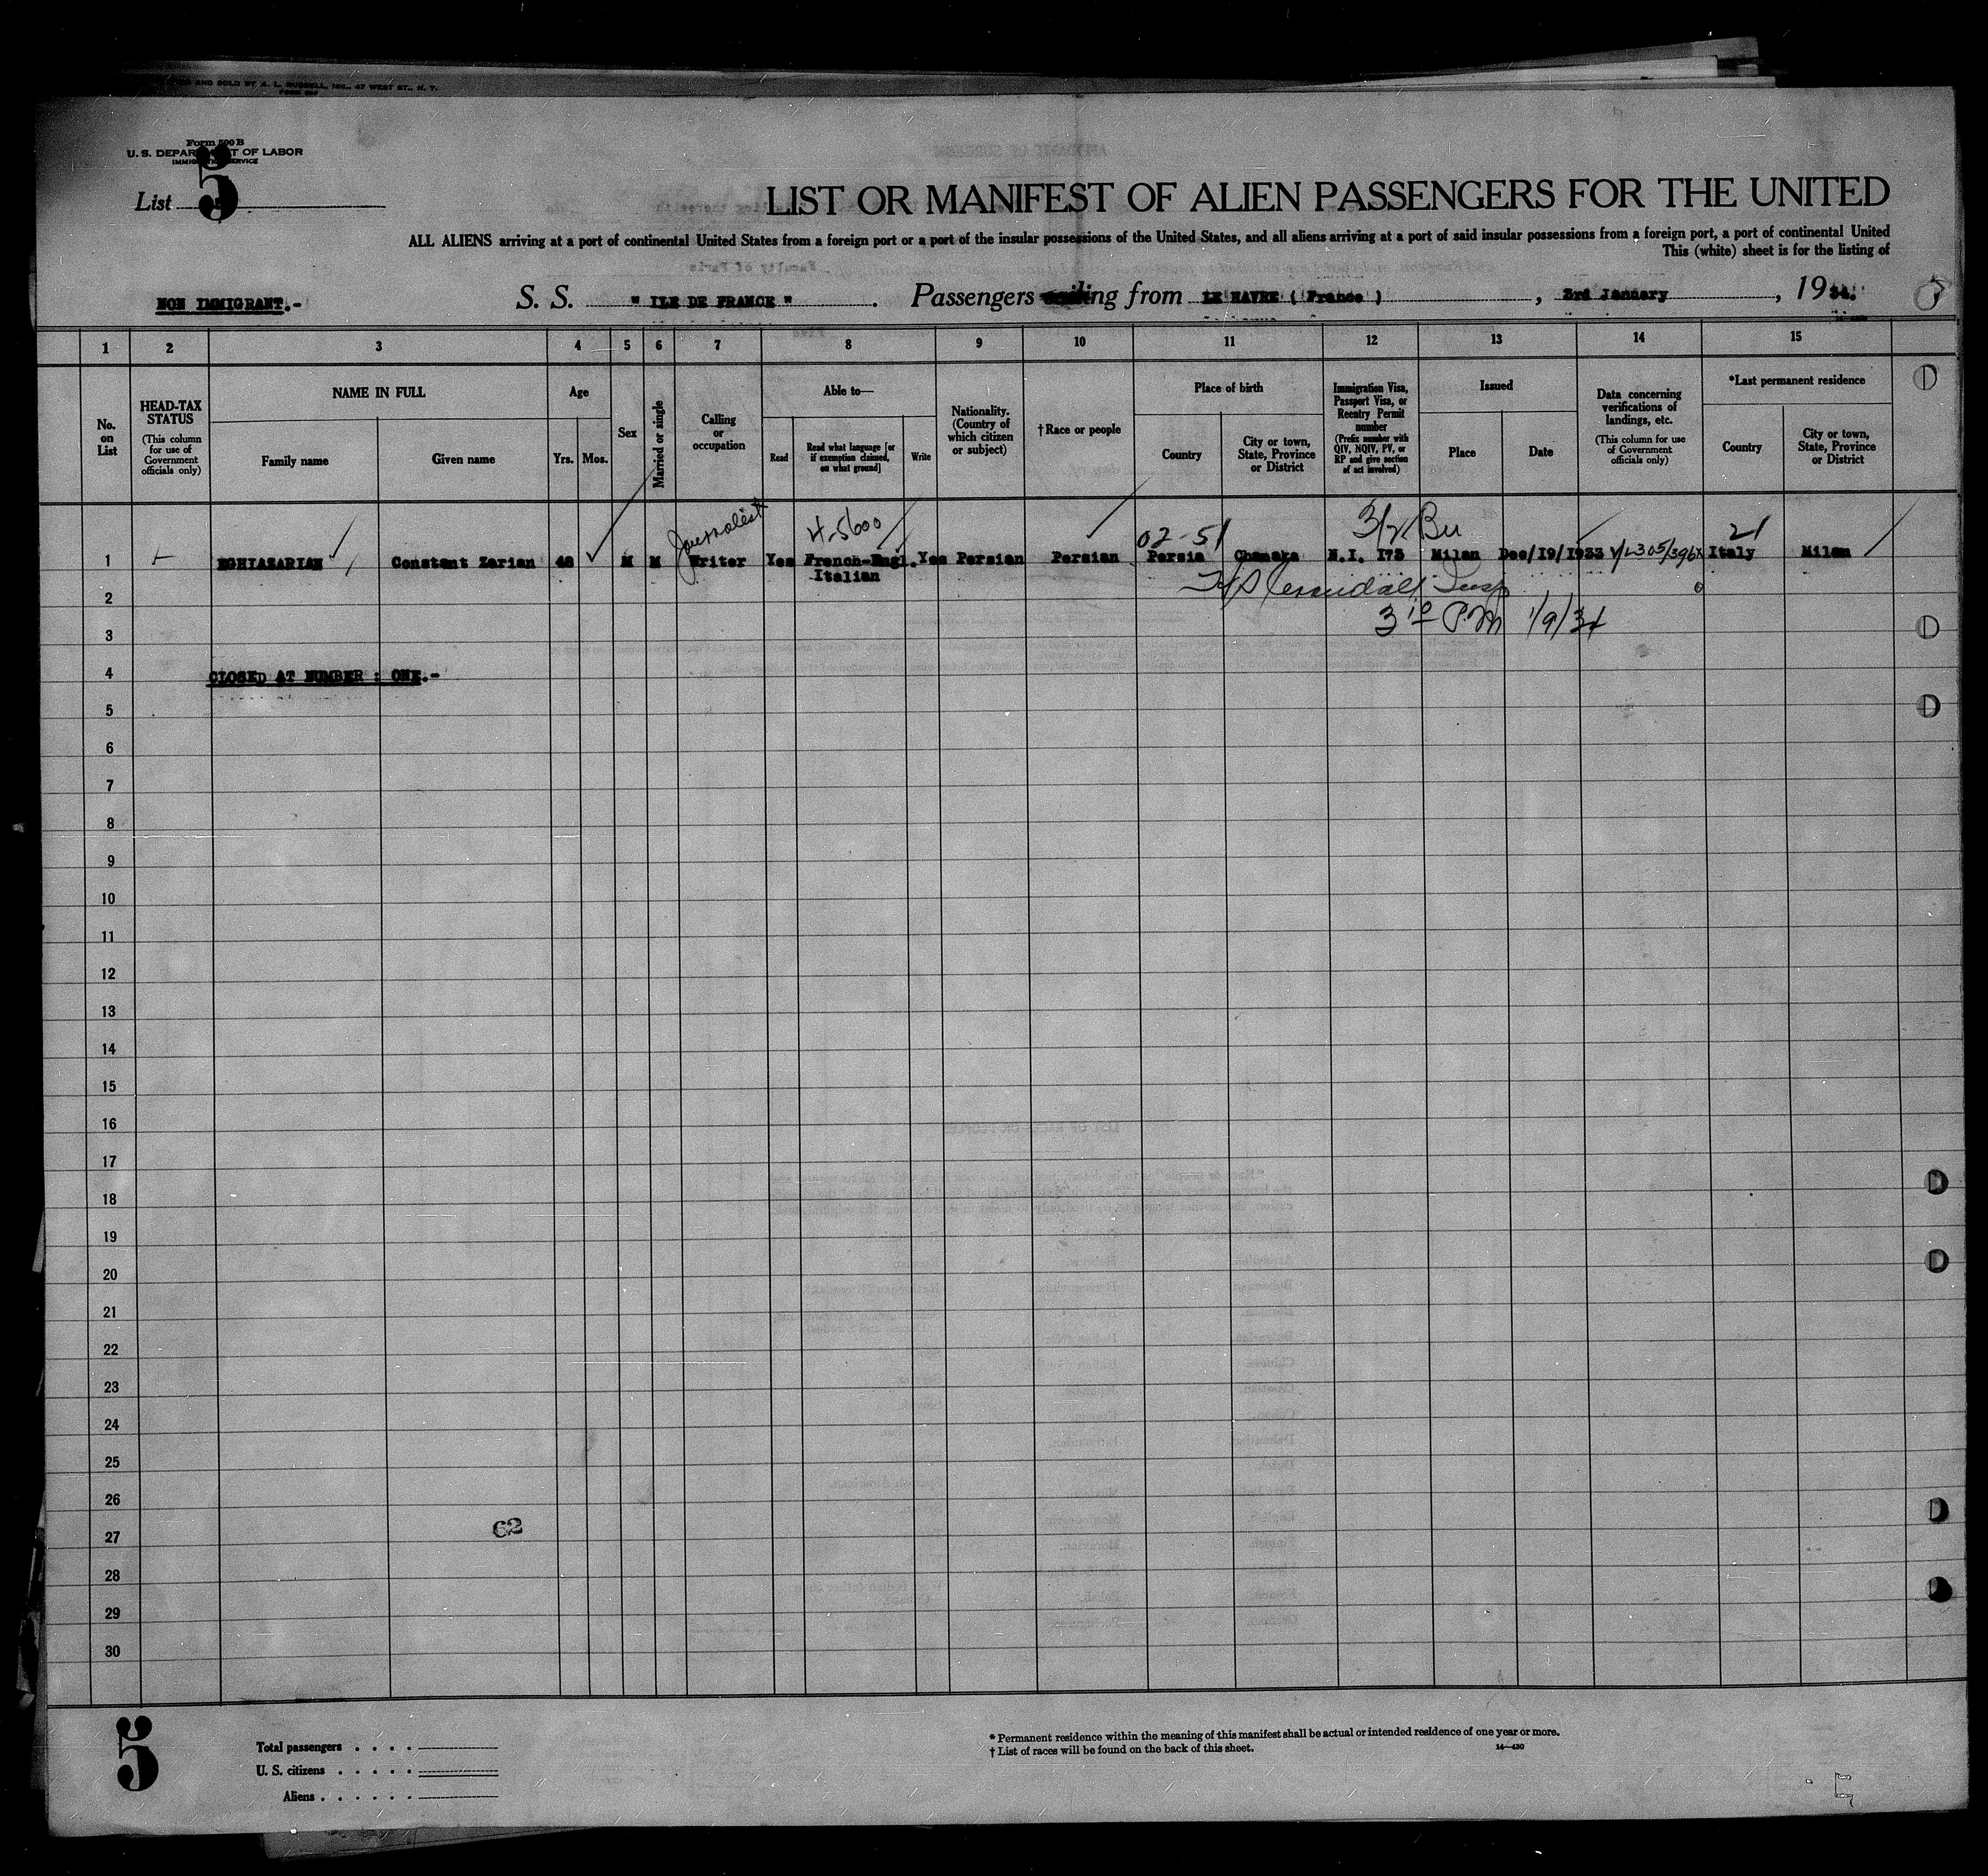 AND SOLD BY A. L. RUSSELL, INC., 47 WEST ST., N. Y.
Form 500 B
U. S. DEPARTMENT OF LABOR
IMMIGRATION SERVICE
List 5
LIST OR MANIFEST OF ALIEN PASSENGERS FOR THE UNITED
ALL ALIENS arriving at a port of continental United States from a foreign port or a port of the insular possessions of the United States, and all aliens arriving at a port of said insular possessions from a foreign port, a port of continental United
This (white) sheet is for the listing of
NON IMMIGRANT.-
S. S. " ILE DE FRANCE " . Passengers sailing from LE HAVRE ( France ) , 3rd January , 1934.
1 2 3 4 5 6 7 8 9 10 11 12 13 14 15
No. on List
HEAD-TAX STATUS (This column for use of Government officials only)
NAME IN FULL
Family name
Given name
Age
Yrs. Mos.
Sex
Married or single
Calling or occupation
Able to—
Read
Read what language [or if exemption claimed, on what ground]
Write
Nationality. (Country of which citizen or subject)
†Race or people
Place of birth
Country
City or town, State, Province or District
Immigration Visa, Passport Visa, or Reentry Permit number (Prefix number with QIV, NQIV, PV, or RP and give section of act involved)
Issued
Place
Date
Data concerning verifications of landings, etc. (This column for use of Government officials only)
*Last permanent residence
Country
City or town, State, Province or District
Journalist 4-5600 02-51 3/2 Bu 21
1 EGHIAZARIAN Constant Zarian 48 M M Writer Yes French-Engl. Yes Persian Persian Persia Chamaka N.I. 173 Milan Dec/19/1933 Italy Milan
Italian
2
3 10 P.M 1/9/34
3
4 CLOSED AT NUMBER : ONE.-
5
6
7
8
9
10
11
12
13
14
15
16
17
18
19
20
21
22
23
24
25
26
27
62
28
29
30
5
Total passengers . . . .
U. S. citizens . . . . .
Aliens . . . . . .
* Permanent residence within the meaning of this manifest shall be actual or intended residence of one year or more.
† List of races will be found on the back of this sheet.
14—430